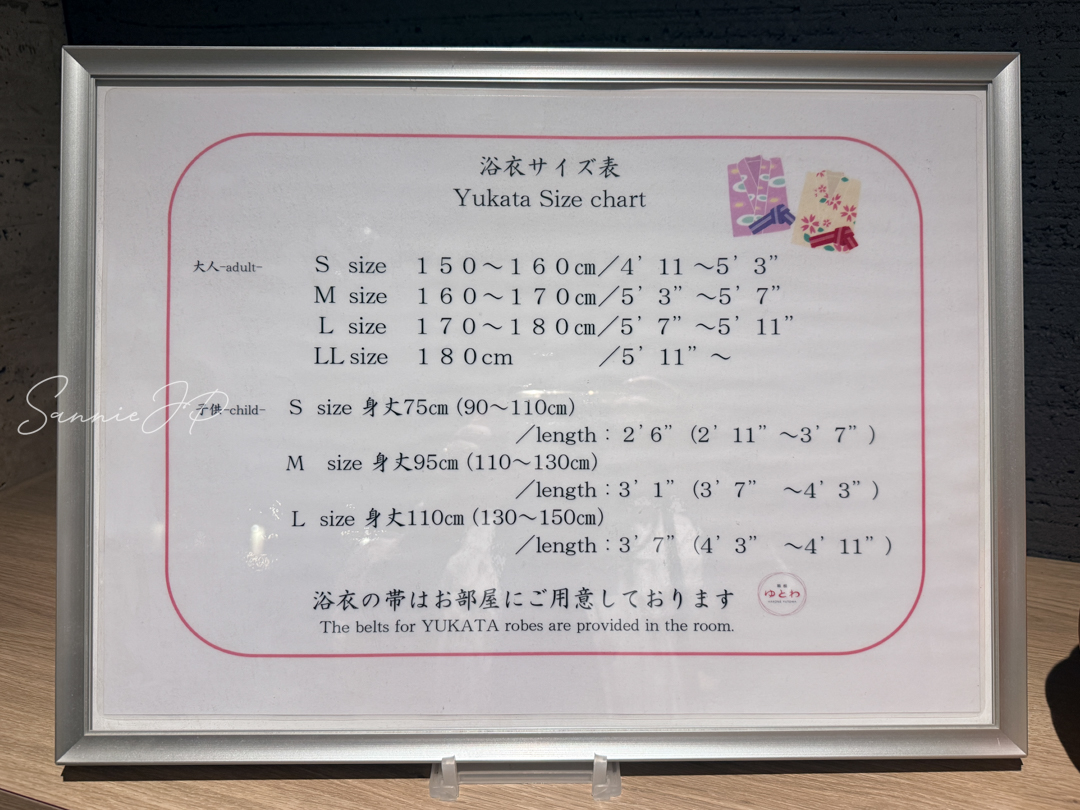 浴衣サイズ表
Yukata Size chart
大人-adult- S size １５０～１６０㎝／4’ 11 ～5’ 3”
M size １６０～１７０㎝／5’ 3” ～5’ 7”
L size １７０～１８０㎝／5’ 7” ～5’ 11”
LL size １８０cm ／5’ 11” ～
子供-child- S size 身丈75㎝ (90～110㎝)
／length：2’6” (2’ 11” ～3’ 7” )
M size 身丈95㎝ (110～130㎝)
／length：3’ 1” (3’ 7” ～4’ 3” )
L size 身丈110㎝ (130～150㎝)
／length：3’ 7” (4’ 3” ～4’ 11” )
浴衣の帯はお部屋にご用意しております
ゆとわ
The belts for YUKATA robes are provided in the room.
SannieJP